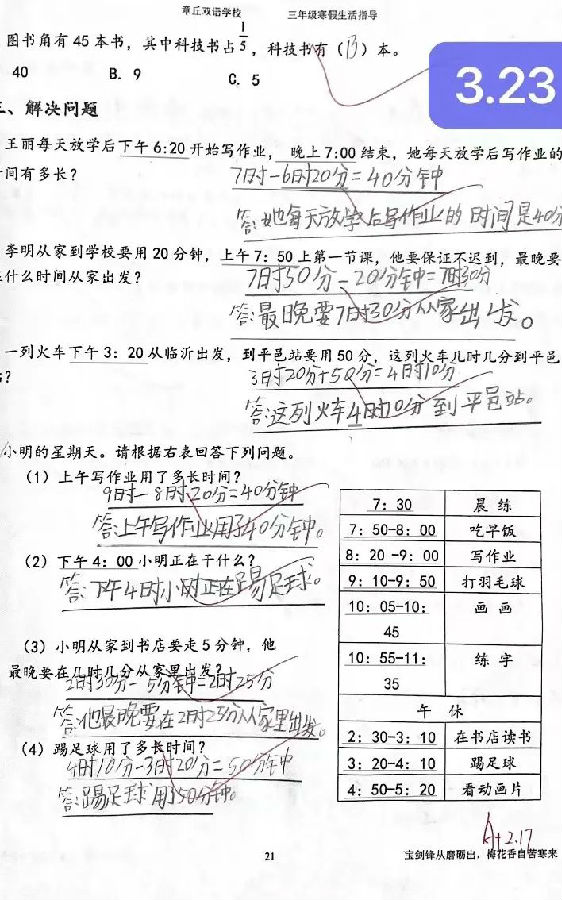 章丘双语学校 三年级寒假生活指导
图书角有 45 本书，其中科技书占1/5，科技书有（B）本。
40 B. 9 C. 5
3.23
三、解决问题
王丽每天放学后下午 6:20 开始写作业， 晚上 7:00 结束，她每天放学后写作业的
间有多长？
7时-6时20分=40分钟
答:她每天放学后写作业的时间是40分
李明从家到学校要用 20 分钟，上午 7：50 上第一节课，他要保证不迟到，最晚要
什么时间从家出发？
7时50分-20分钟=7时30分
答:最晚要7时30分从家出发。
一列火车下午 3：20 从临沂出发，到平邑站要用 50 分，这列火车几时几分到平邑
？
3时20分+50分=4时10分
答:这列火车4时10分到平邑站。
小明的星期天。请根据右表回答下列问题。
（1）上午写作业用了多长时间？
9时-8时20分=40分钟
答:上午写作业用了40分钟。
（2）下午 4：00 小明正在干什么？
答:下午4时小明正在踢足球。
（3）小明从家到书店要走 5 分钟，他
最晚要在几时几分从家里出发？
2时30分-5分钟=2时25分
答:他最晚要在2时25分从家里出发。
（4）踢足球用了多长时间？
4时10分-3时20分=50分钟
答:踢足球用50分钟。
7：30 晨练
7：50-8：00 吃早饭
8：20-9：00 写作业
9：10-9：50 打羽毛球
10：05-10：45 画画
10：55-11：35 练字
午休
2：30-3：10 在书店读书
3：20-4：10 踢足球
4：50-5：20 看动画片
A+ 2.17
21 宝剑锋从磨砺出，梅花香自苦寒来